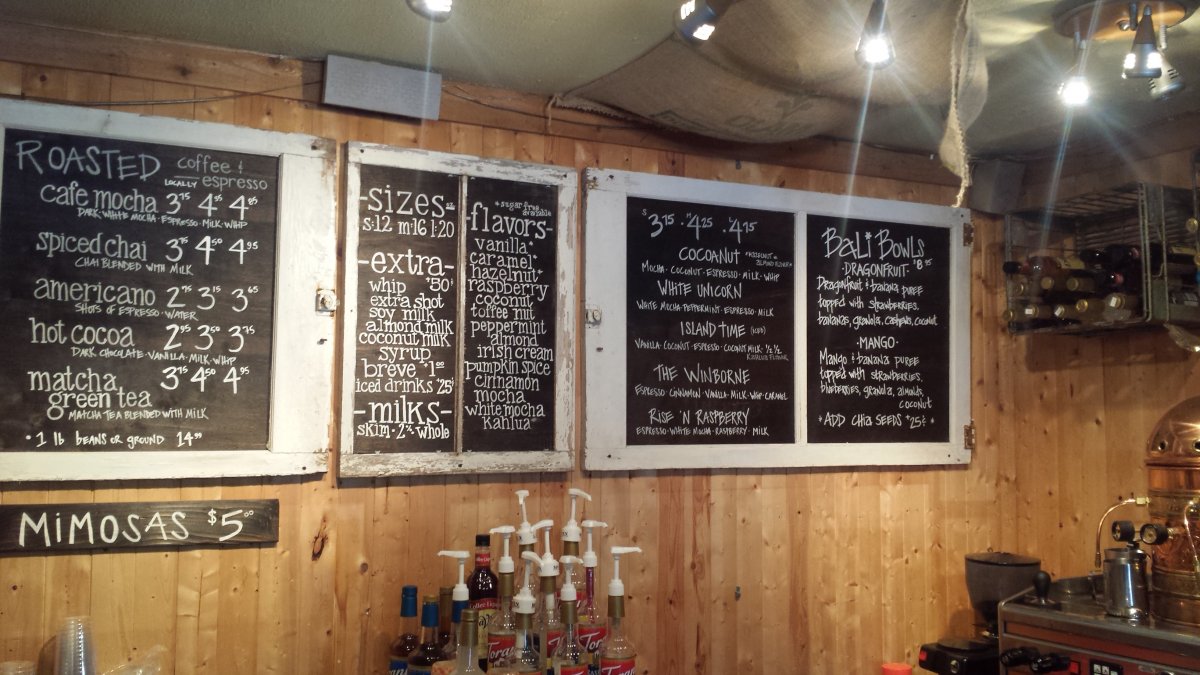 ROASTED coffee & LOCALLY espresso
cafe mocha 3⁷⁵ 4²⁵ 4⁸⁵
DARK·WHITE MOCHA·ESPRESSO·MILK·WHIP
spiced chai 3⁷⁵ 4⁵⁰ 4⁹⁵
CHAI BLENDED WITH MILK
americano 2⁷⁵ 3¹⁵ 3⁶⁵
SHOTS OF ESPRESSO·WATER
hot cocoa 2⁹⁵ 3⁵⁰ 3⁷⁵
DARK CHOCOLATE·VANILLA·MILK·WHIP
matcha green tea 3⁷⁵ 4⁵⁰ 4⁹⁵
MATCHA TEA BLENDED WITH MILK
• 1 lb BEANS OR GROUND 14⁹⁹
MiMOSAS $5⁰⁰
-sizes-
s:12 m:16 l:20
-extra-
whip .30¢
extra shot
soy milk
almond milk
coconut milk
syrup
breve 1⁰⁰
iced drinks .25¢
-milks-
skim·2%·whole
*sugar free available
-flavors-
vanilla*
caramel*
hazelnut*
raspberry
coconut
toffee nut
peppermint
almond
irish cream
pumpkin spice
cinnamon
mocha
white mocha
kahlua*
S3⁷⁵ · M4²⁵ · L4⁷⁵
COCOANUT
MOCHA·COCONUT·ESPRESSO·MILK·WHIP
WHITE UNICORN
WHITE MOCHA·PEPPERMINT·ESPRESSO·MILK
ISLAND TIME (ICED)
VANILLA·COCONUT·ESPRESSO·COCONUT MILK·½ ½
THE WINBORNE
ESPRESSO·CINNAMON·VANILLA·MILK·WHIP·CARAMEL
RISE 'N RASPBERRY
ESPRESSO·WHITE MOCHA·RASPBERRY·MILK
Bali Bowls
-DRAGONFRUIT- $8.95
Dragonfruit & banana puree
topped with strawberries,
bananas, granola, cashews, coconut
·MANGO·
Mango & banana puree
topped with strawberries,
blueberries, granola, almonds,
coconut
*ADD CHIA SEEDS +25¢*
Torani